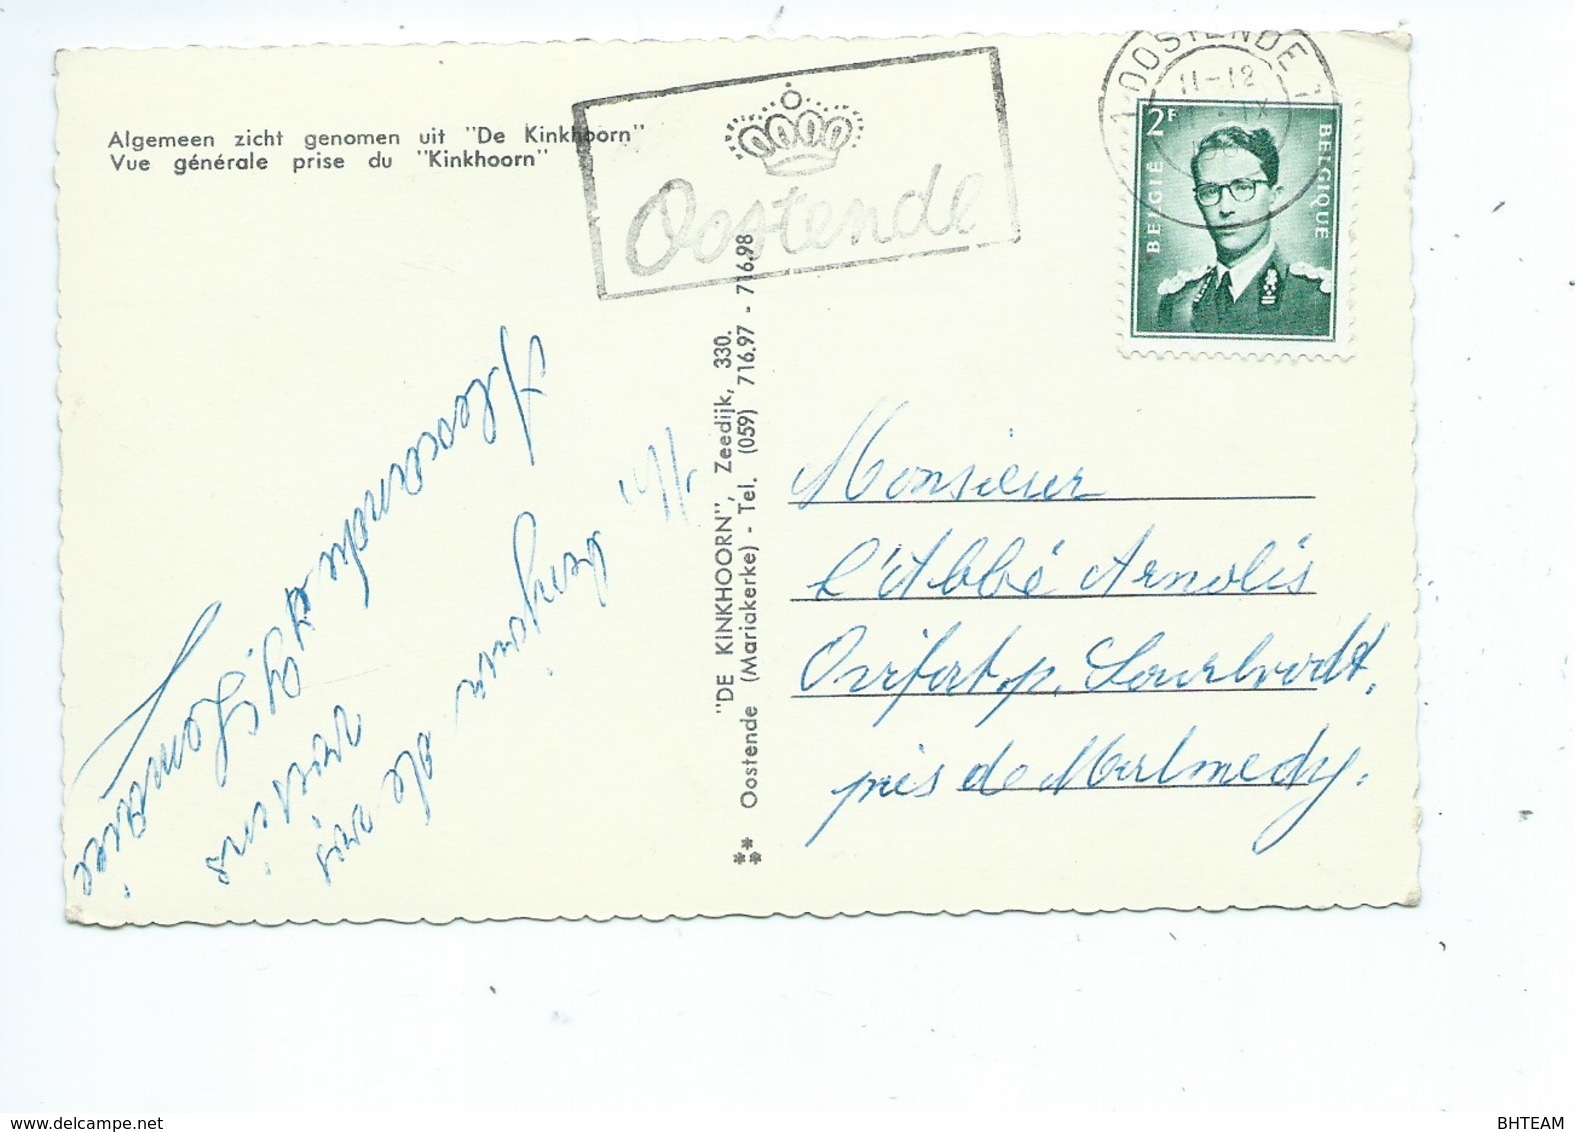 Algemeen zicht genomen uit "De Kinkhoorn"
Vue générale prise du "Kinkhoorn"
Oostende
1 OOSTENDE 1
11-12
IX
2F
BELGIË
BELGIQUE
"DE KINKHOORN", Zeedijk, 330.
Oostende (Mariakerke) - Tel. (059) 716.97 - 716.98
Un
bonjour
de vos
voisins
Monsieur
l'Abbé Arnolis
Ovifat p. Sourbrodt,
près de Malmedy.
www.delcampe.net
BHTEAM